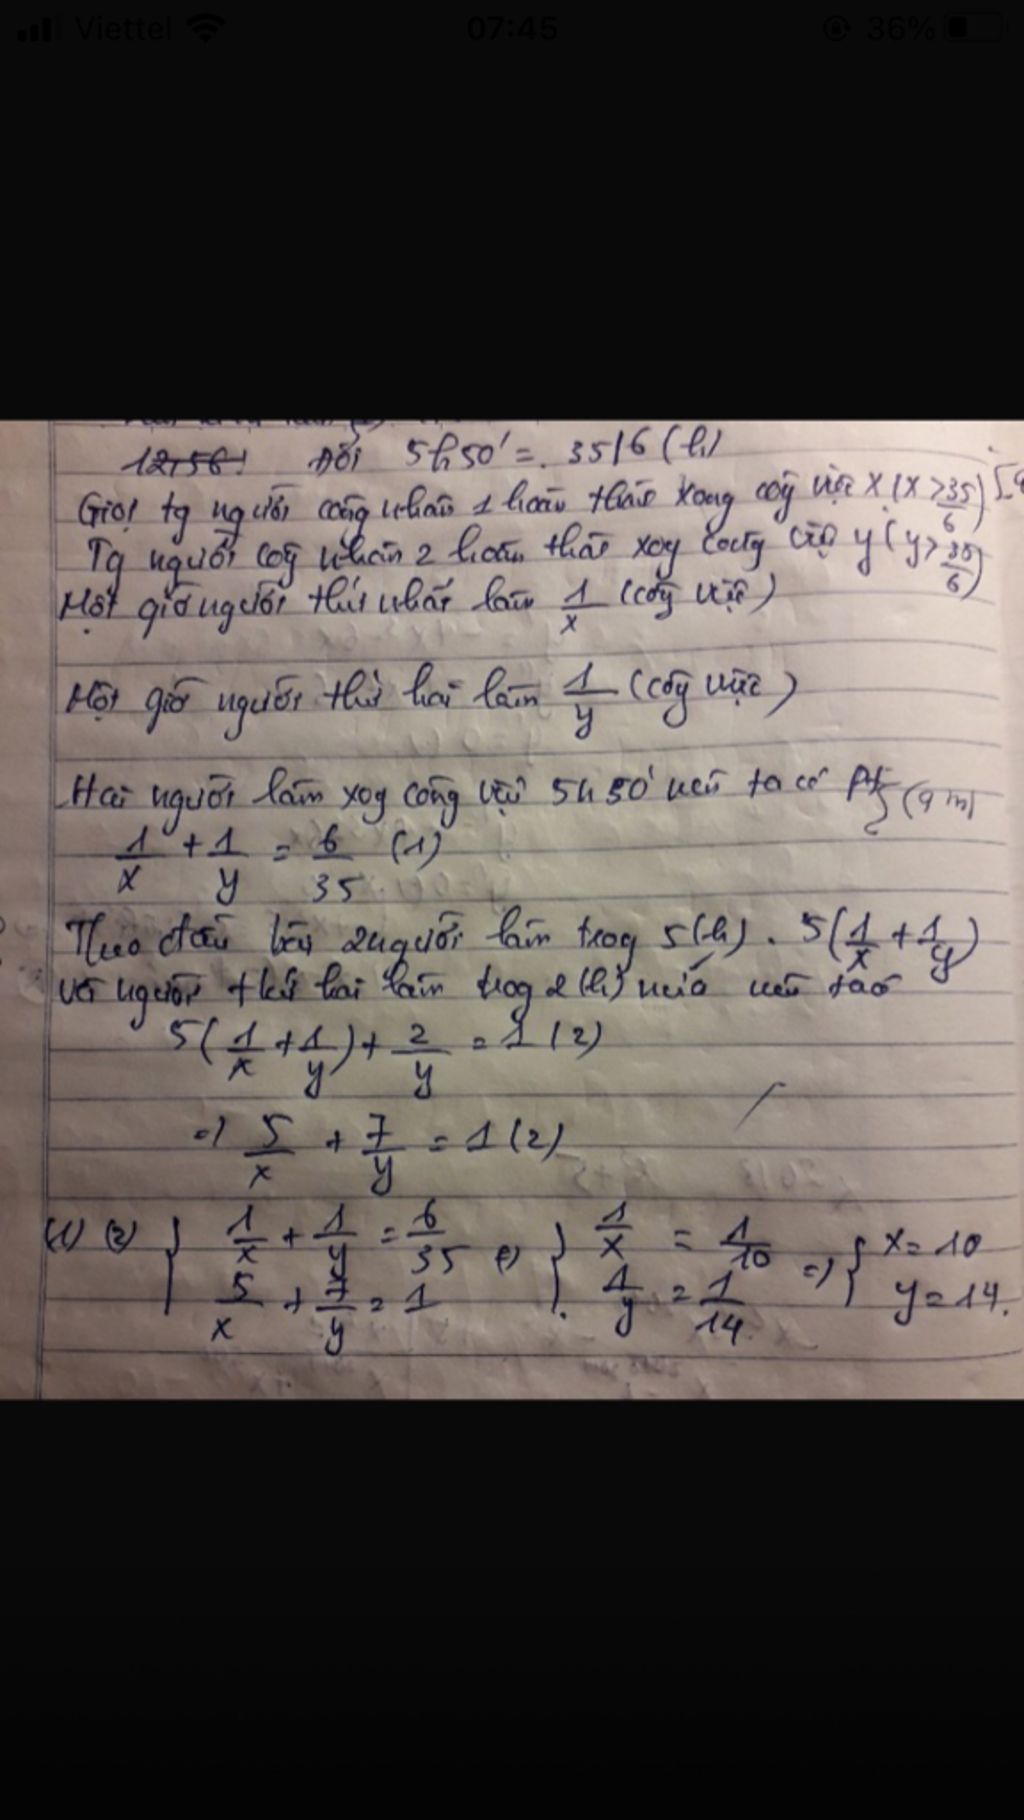 Viettel 07:45 36%
12,56! Đổi 5h50' = 35/6 (h)
Gọi tg người công nhân 1 hoàn thành xong côg việc x (x > 35/6)
Tg người côg nhân 2 hoàn thàh xog công việc y (y > 35/6)
Một giờ người thứ nhất làm 1/x (côg việc)
Một giờ người thứ hai làm 1/y (côg việc)
Hai người làm xog công việc 5h50' nên ta có pt
1/x + 1/y = 6/35 (1)
Theo đầu bài 2 người làm trog 5(h). 5(1/x + 1/y)
và người thứ hai làm trog 2(h) nữa nên ta có
5(1/x + 1/y) + 2/y = 1 (2)
=) 5/x + 7/y = 1 (2)
(1) (2) { 1/x + 1/y = 6/35 (=) { 1/x = 1/10 =) { x = 10
5/x + 7/y = 1 1/y = 1/14 y = 14.